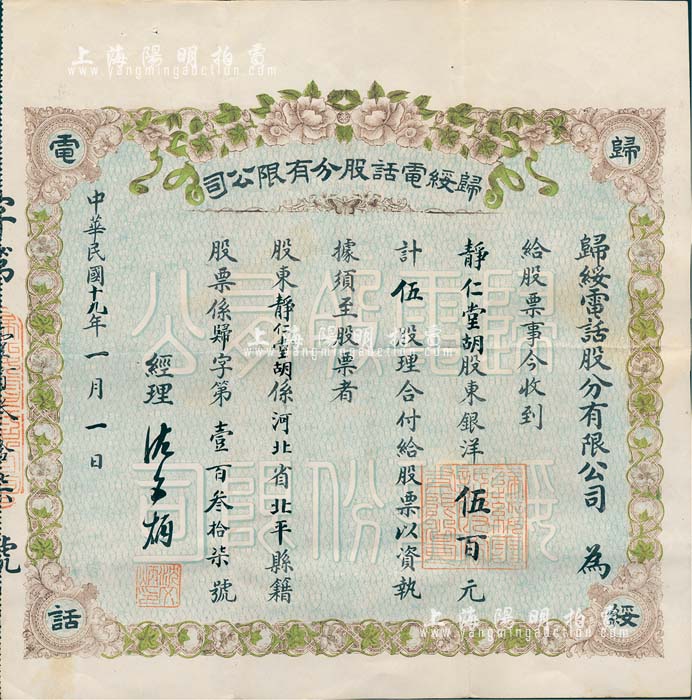 上海陽明拍賣
www.yangmingauction.com
歸
綏
電
話
歸綏電話股分有限公司
歸綏電話股分有限公司 為
給股票事今收到
靜仁堂胡股東銀洋伍百元
計伍股理合付給股票以資執
據須至股票者
股東靜仁堂胡係河北省北平縣籍
股票係歸字第壹百叁拾柒號
經理
中華民國十九年一月一日
字第
號
上海陽明拍賣
www.yangmingauction.com
上海陽明拍賣
www.yangmingauction.com